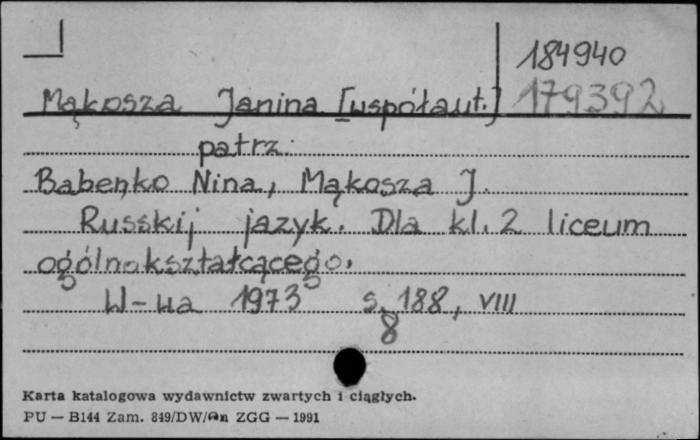 184940
Mąkosza Janina [współaut.] 179392
patrz:
Babenko Nina, Mąkosza J.
Russkij jazyk. Dla kl. 2 liceum
ogólnokształcącego.
W-wa 1973 s. 188, VIII
8
Karta katalogowa wydawnictw zwartych i ciągłych.
PU — B144 Zam. 849/DW/ ZGG — 1991